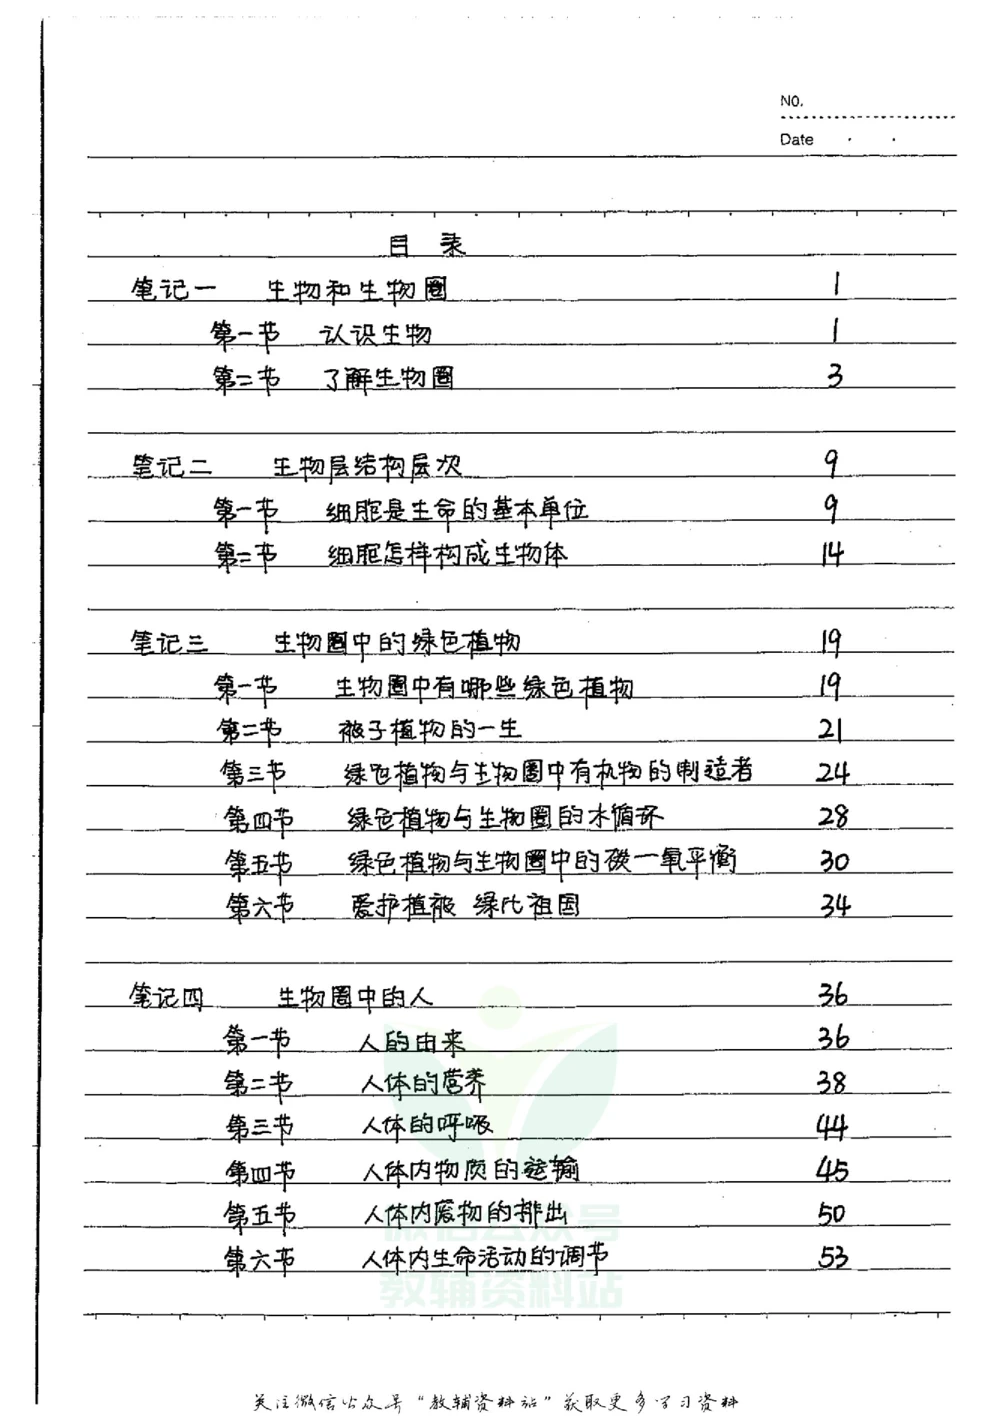 NO.
Date
目 录
笔记一 生物和生物圈 1
第一节 认识生物 1
第二节 了解生物圈 3
笔记二 生物层结构层次 9
第一节 细胞是生命的基本单位 9
第二节 细胞怎样构成生物体 14
笔记三 生物圈中的绿色植物 19
第一节 生物圈中有哪些绿色植物 19
第二节 被子植物的一生 21
第三节 绿色植物与生物圈中有机物的制造者 24
第四节 绿色植物与生物圈的水循环 28
第五节 绿色植物与生物圈中的碳一氧平衡 30
第六节 爱护植被 绿化祖国 34
笔记四 生物圈中的人 36
第一节 人的由来 36
第二节 人体的营养 38
第三节 人体的呼吸 44
第四节 人体内物质的运输 45
第五节 人体内废物的排出 50
第六节 人体内生命活动的调节 53
微信公众号
教辅资料站
关注微信公众号“教辅资料站”获取更多学习资料